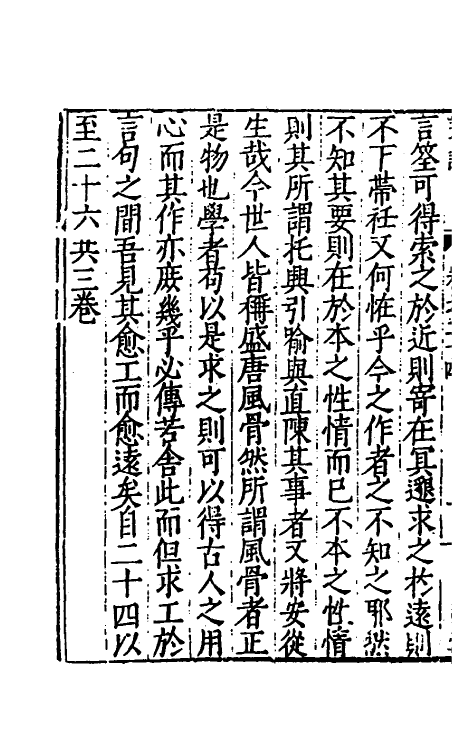 言筌可得索之於近則寄在冥邈求之於遠則
不下帶衽又何恠乎今之作者之不知之耶然
不知其要則在於本之性情而已不本之性情
則其所謂托興引喻與直陳其事者又將安從
生哉今世人皆稱盛唐風骨然所謂風骨者正
是物也學者苟以是求之則可以得古人之用
心而其作亦庶幾乎必傳若舍此而但求工於
言句之間吾見其愈工而愈遠矣自二十四以
至二十六共三卷